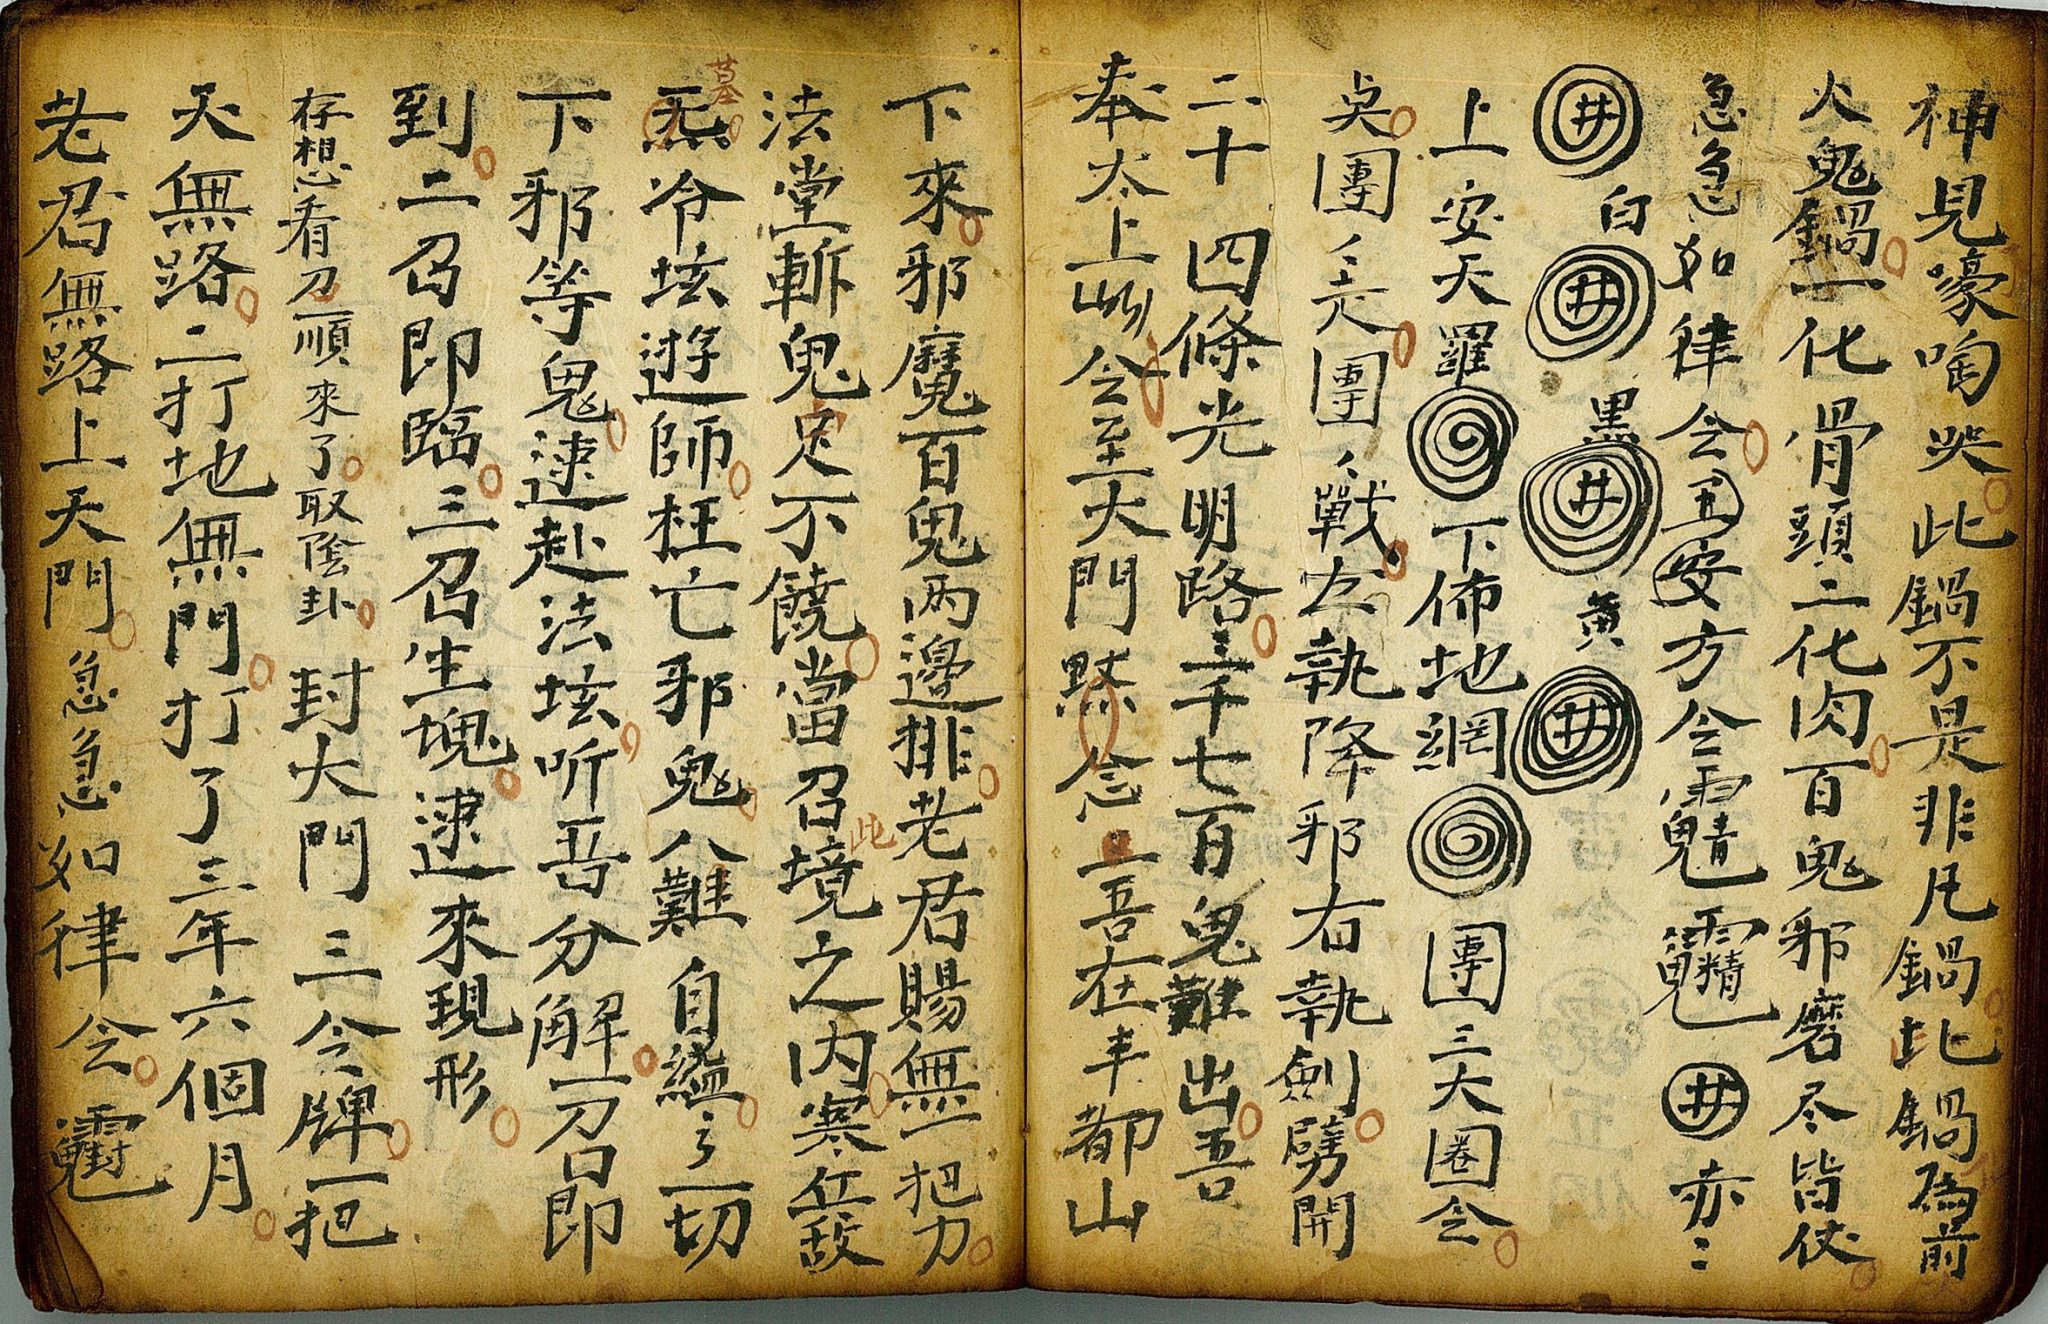 神見嚎啕哭此鍋不是非凡鍋此鍋為前
火鬼鍋一化骨頭二化肉百鬼邪磨尽皆伏
急急如律令五安方令 井赤〻
井白井黑井黄井
上安天羅下佈地網團三大圈令
吳團〻走團〻戰左執降邪右執劍劈開
二十四條光明路三千七百鬼難出吾
奉太上此令至大門默念一吾在丰都山
下來邪魔百鬼两邊排老君賜無一把刀
法堂斬鬼定不饒當召此境之内寒丘敌
墓无冷坛遊師枉亡邪鬼八難自縊之一切
下邪等鬼逮赴法坛听吾分解一召即
到二召即臨三召生塊逮來現形
存想看刀順來了取陰卦封大門三令牌一把
天無路二打地無門打了三年六個月
老君無路上天門急急如律令